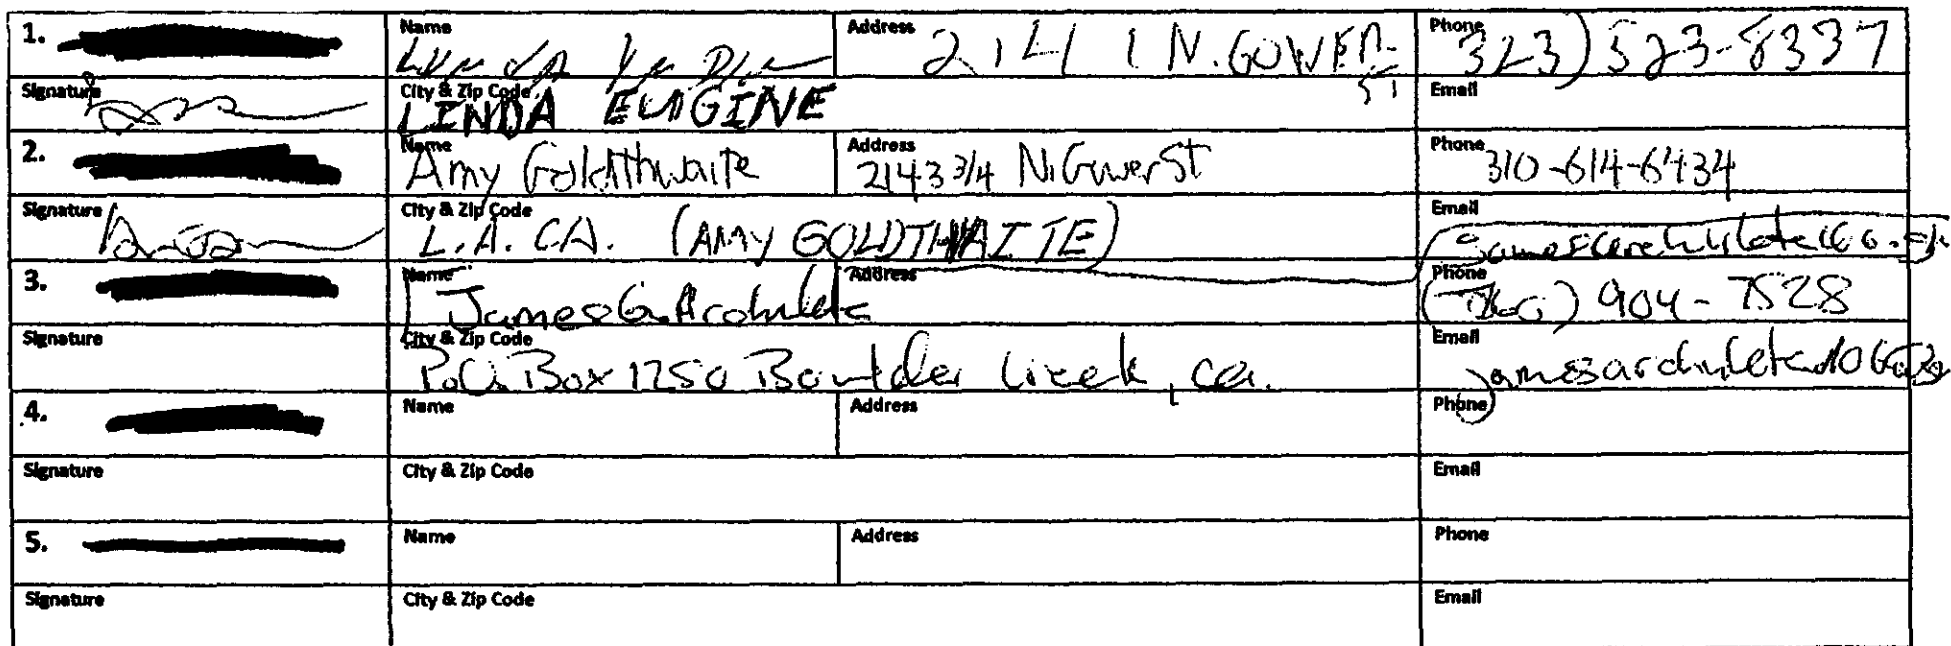 1. Name Address 2141 N. GOWER ST Phone 323) 523-8337
Signature City & Zip Code LINDA Email
2. Name Amy Goldthwaite Address 2143 3/4 N. Gower St Phone 310-614-6434
Signature City & Zip Code L.A. CA. (AMY GOLDTHWAITE) Email
3. Name James G. Archuleta Address Phone 904-7528
Signature City & Zip Code P.O. Box 1250 Boulder Creek, Ca. Email
4. Name Address Phone
Signature City & Zip Code Email
5. Name Address Phone
Signature City & Zip Code Email